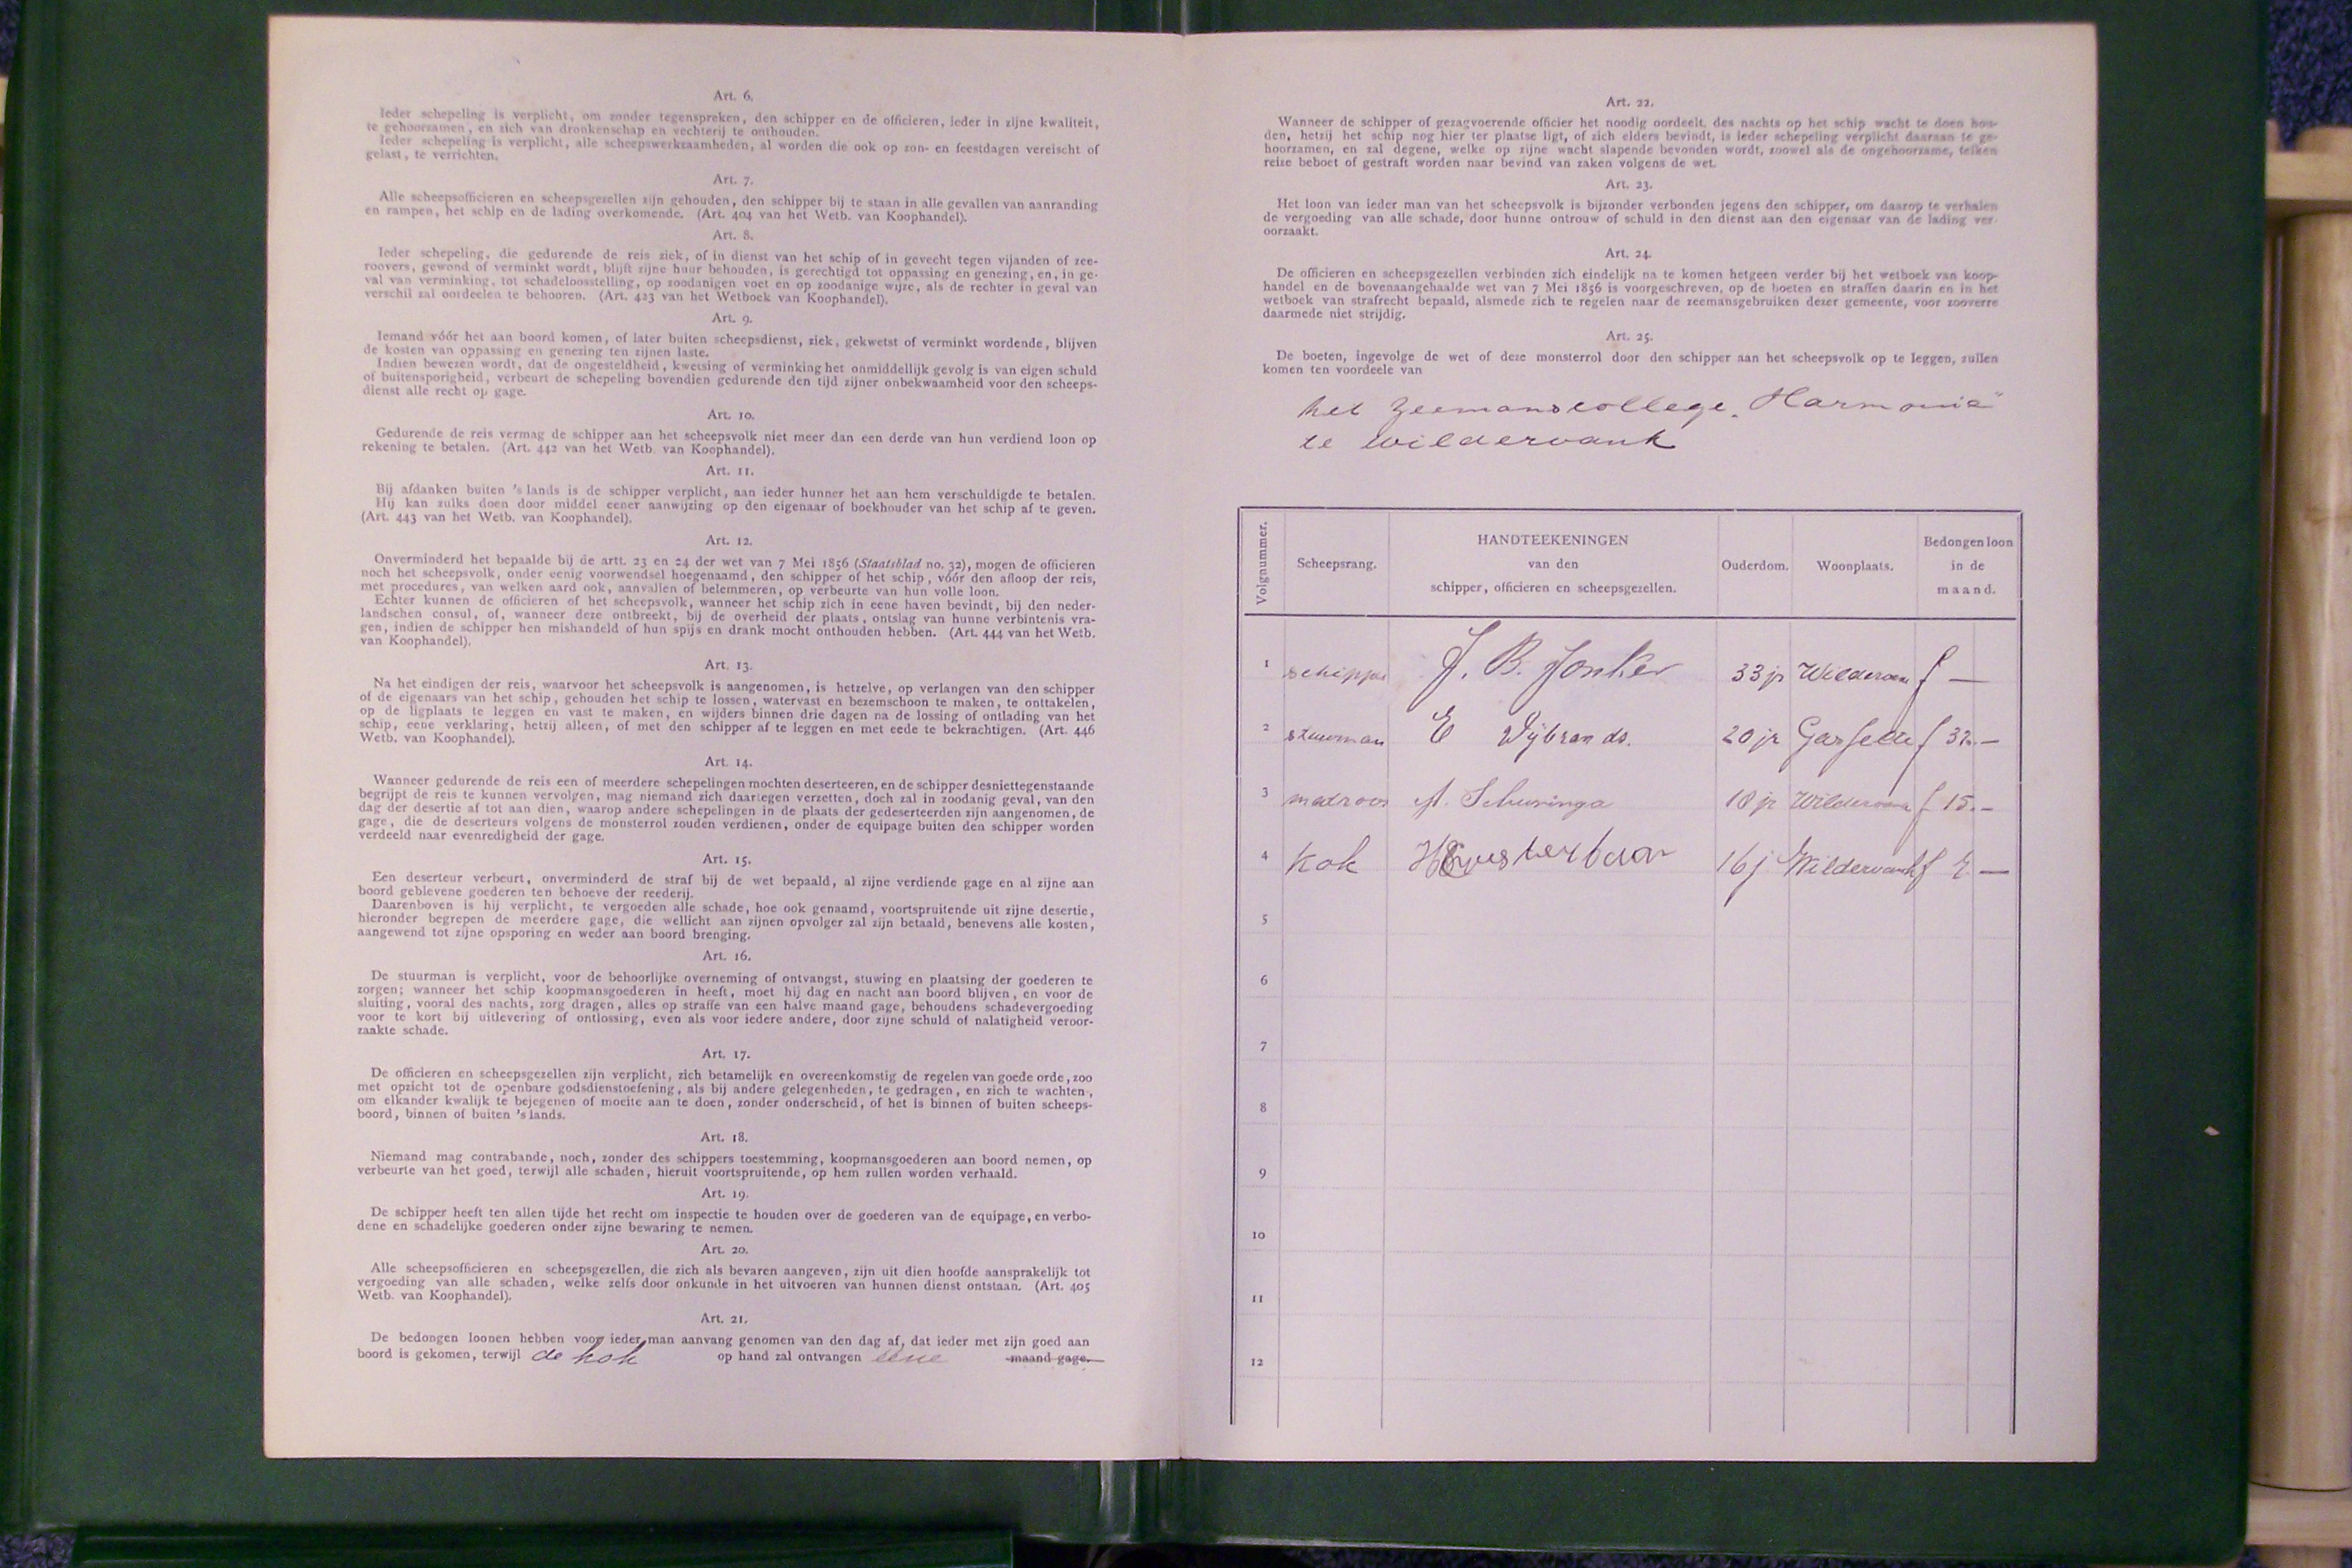 Art. 6.
Ieder schepeling is verplicht, om zonder tegenspreken, den schipper en de officieren, ieder in zijne kwaliteit,
te gehoorzamen, en zich van dronkenschap en vechterij te onthouden.
Ieder schepeling is verplicht, alle scheepswerkzaamheden, al worden die ook op zon- en feestdagen vereischt of
gelast, te verrichten.
Art. 7.
Alle scheepsofficieren en scheepsgezellen zijn gehouden, den schipper bij te staan in alle gevallen van aanranding
en rampen, het schip en de lading overkomende. (Art. 404 van het Wetb. van Koophandel).
Art. 8.
Ieder schepeling, die gedurende de reis ziek, of in dienst van het schip of in gevecht tegen vijanden of zee-
roovers, gewond of verminkt wordt, blijft zijne huur behouden, is gerechtigd tot oppassing en genezing, en, in ge-
val van verminking, tot schadeloosstelling, op zoodanigen voet en op zoodanige wijze, als de rechter in geval van
verschil zal oordeelen te behooren. (Art. 423 van het Wetboek van Koophandel).
Art. 9.
Iemand vóór het aan boord komen, of later buiten scheepsdienst, ziek, gekwetst of verminkt wordende, blijven
de kosten van oppassing en genezing ten zijnen laste.
Indien bewezen wordt, dat de ongesteldheid, kwetsing of verminking het onmiddellijk gevolg is van eigen schuld
of buitensporigheid, verbeurt de schepeling bovendien gedurende den tijd zijner onbekwaamheid voor den scheeps-
dienst alle recht op gage.
Art. 10.
Gedurende de reis vermag de schipper aan het scheepsvolk niet meer dan een derde van hun verdiend loon op
rekening te betalen. (Art. 442 van het Wetb. van Koophandel).
Art. 11.
Bij afdanken buiten 's lands is de schipper verplicht, aan ieder hunner het aan hem verschuldigde te betalen.
Hij kan zulks doen door middel eener aanwijzing op den eigenaar of boekhouder van het schip af te geven.
(Art. 443 van het Wetb. van Koophandel).
Art. 12.
Onverminderd het bepaalde bij de artt. 23 en 24 der wet van 7 Mei 1856 (Staatsblad no. 32), mogen de officieren
noch het scheepsvolk, onder eenig voorwendsel hoegenaamd, den schipper of het schip, vóór den afloop der reis,
met procedures, van welken aard ook, aanvallen of belemmeren, op verbeurte van hun volle loon.
Echter kunnen de officieren of het scheepsvolk, wanneer het schip zich in eene haven bevindt, bij den neder-
landschen consul, of, wanneer deze ontbreekt, bij de overheid der plaats, ontslag van hunne verbintenis vra-
gen, indien de schipper hen mishandeld of hun spijs en drank mocht onthouden hebben. (Art. 444 van het Wetb.
van Koophandel).
Art. 13.
Na het eindigen der reis, waarvoor het scheepsvolk is aangenomen, is hetzelve, op verlangen van den schipper
of de eigenaars van het schip, gehouden het schip te lossen, watervast en bezemschoon te maken, te onttakelen,
op de ligplaats te leggen en vast te maken, en wijders binnen drie dagen na de lossing of ontlading van het
schip, eene verklaring, hetzij alleen, of met den schipper af te leggen en met eede te bekrachtigen. (Art. 446
Wetb. van Koophandel).
Art. 14.
Wanneer gedurende de reis een of meerdere schepelingen mochten deserteeren, en de schipper desniettegenstaande
begrijpt de reis te kunnen vervolgen, mag niemand zich daartegen verzetten, doch zal in zoodanig geval, van den
dag der desertie af tot aan dien, waarop andere schepelingen in de plaats der gedeserteerden zijn aangenomen, de
gage, die de deserteurs volgens de monsterrol zouden verdienen, onder de equipage buiten den schipper worden
verdeeld naar evenredigheid der gage.
Art. 15.
Een deserteur verbeurt, onverminderd de straf bij de wet bepaald, al zijne verdiende gage en al zijne aan
boord geblevene goederen ten behoeve der reederij.
Daarenboven is hij verplicht, te vergoeden alle schade, hoe ook genaamd, voortspruitende uit zijne desertie,
hieronder begrepen de meerdere gage, die wellicht aan zijnen opvolger zal zijn betaald, benevens alle kosten,
aangewend tot zijne opsporing en weder aan boord brenging.
Art. 16.
De stuurman is verplicht, voor de behoorlijke overneming of ontvangst, stuwing en plaatsing der goederen te
zorgen; wanneer het schip koopmansgoederen in heeft, moet hij dag en nacht aan boord blijven, en voor de
sluiting, vooral des nachts, zorg dragen, alles op straffe van een halve maand gage, behoudens schadevergoeding
voor te kort bij uitlevering of ontlossing, even als voor iedere andere, door zijne schuld of nalatigheid veroor-
zaakte schade.
Art. 17.
De officieren en scheepsgezellen zijn verplicht, zich betamelijk en overeenkomstig de regelen van goede orde, zoo
met opzicht tot de openbare godsdienstoefening, als bij andere gelegenheden, te gedragen, en zich te wachten,
om elkander kwalijk te bejegenen of moeite aan te doen, zonder onderscheid, of het is binnen of buiten scheeps-
boord, binnen of buiten 's lands.
Art. 18.
Niemand mag contrabande, noch, zonder des schippers toestemming, koopmansgoederen aan boord nemen, op
verbeurte van het goed, terwijl alle schaden, hieruit voortspruitende, op hem zullen worden verhaald.
Art. 19.
De schipper heeft ten allen tijde het recht om inspectie te houden over de goederen van de equipage, en verbo-
dene en schadelijke goederen onder zijne bewaring te nemen.
Art. 20.
Alle scheepsofficieren en scheepsgezellen, die zich als bevaren aangeven, zijn uit dien hoofde aansprakelijk tot
vergoeding van alle schaden, welke zelfs door onkunde in het uitvoeren van hunnen dienst ontstaan. (Art. 405
Wetb. van Koophandel).
Art. 21.
De bedongen loonen hebben voor ieder man aanvang genomen van den dag af, dat ieder met zijn goed aan
boord is gekomen, terwijl de kok op hand zal ontvangen eene maand gage.
Art. 22.
Wanneer de schipper of gezagvoerende officier het noodig oordeelt, des nachts op het schip wacht te doen hou-
den, hetzij het schip nog hier ter plaatse ligt, of zich elders bevindt, is ieder schepeling verplicht daaraan te ge-
hoorzamen, en zal degene, welke op zijne wacht slapende bevonden wordt, zoowel als de ongehoorzame, telken
reize beboet of gestraft worden naar bevind van zaken volgens de wet.
Art. 23.
Het loon van ieder man van het scheepsvolk is bijzonder verbonden jegens den schipper, om daarop te verhalen
de vergoeding van alle schade, door hunne ontrouw of schuld in den dienst aan den eigenaar van de lading ver-
oorzaakt.
Art. 24.
De officieren en scheepsgezellen verbinden zich eindelijk na te komen hetgeen verder bij het wetboek van koop-
handel en de bovenaangehaalde wet van 7 Mei 1856 is voorgeschreven, op de boeten en straffen daarin en in het
wetboek van strafrecht bepaald, alsmede zich te regelen naar de zeemansgebruiken dezer gemeente, voor zooverre
daarmede niet strijdig.
Art. 25.
De boeten, ingevolge de wet of deze monsterrol door den schipper aan het scheepsvolk op te leggen, zullen
komen ten voordeele van
het Zeemanscollege „Harmonie"
te Wildervank
Volgnummer. Scheepsrang. HANDTEEKENINGEN van den schipper, officieren en scheepsgezellen. Ouderdom. Woonplaats. Bedongen loon in de maand.
1 schipper J. B. Jonker 33 jr Wildervank f —
2 stuurman E Wijbrands. 20 jr Gasselte f 32.—
3 matroos A. Schuringa 18 jr Wildervank f 15.—
4 kok 16 j Wildervank f —
5
6
7
8
9
10
11
12